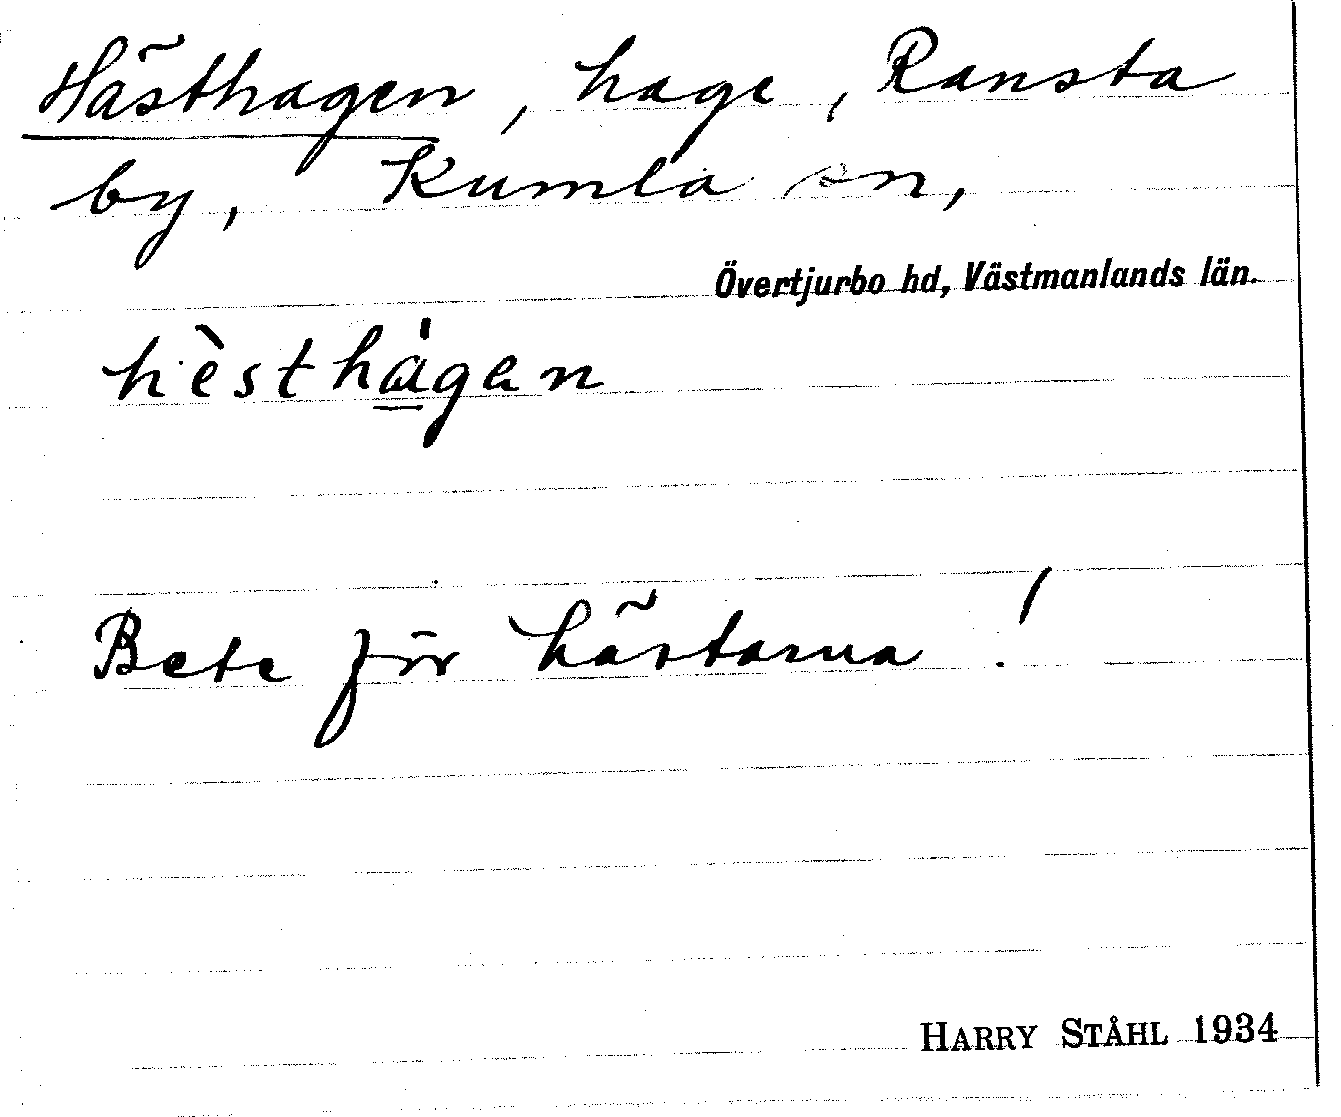 Hästhagen, hage, Ransta
by, Kumla sn,
Övertjurbo hd, Västmanlands län.
hèsthàgen
Bete för hästarna!
HARRY STÅHL 1934